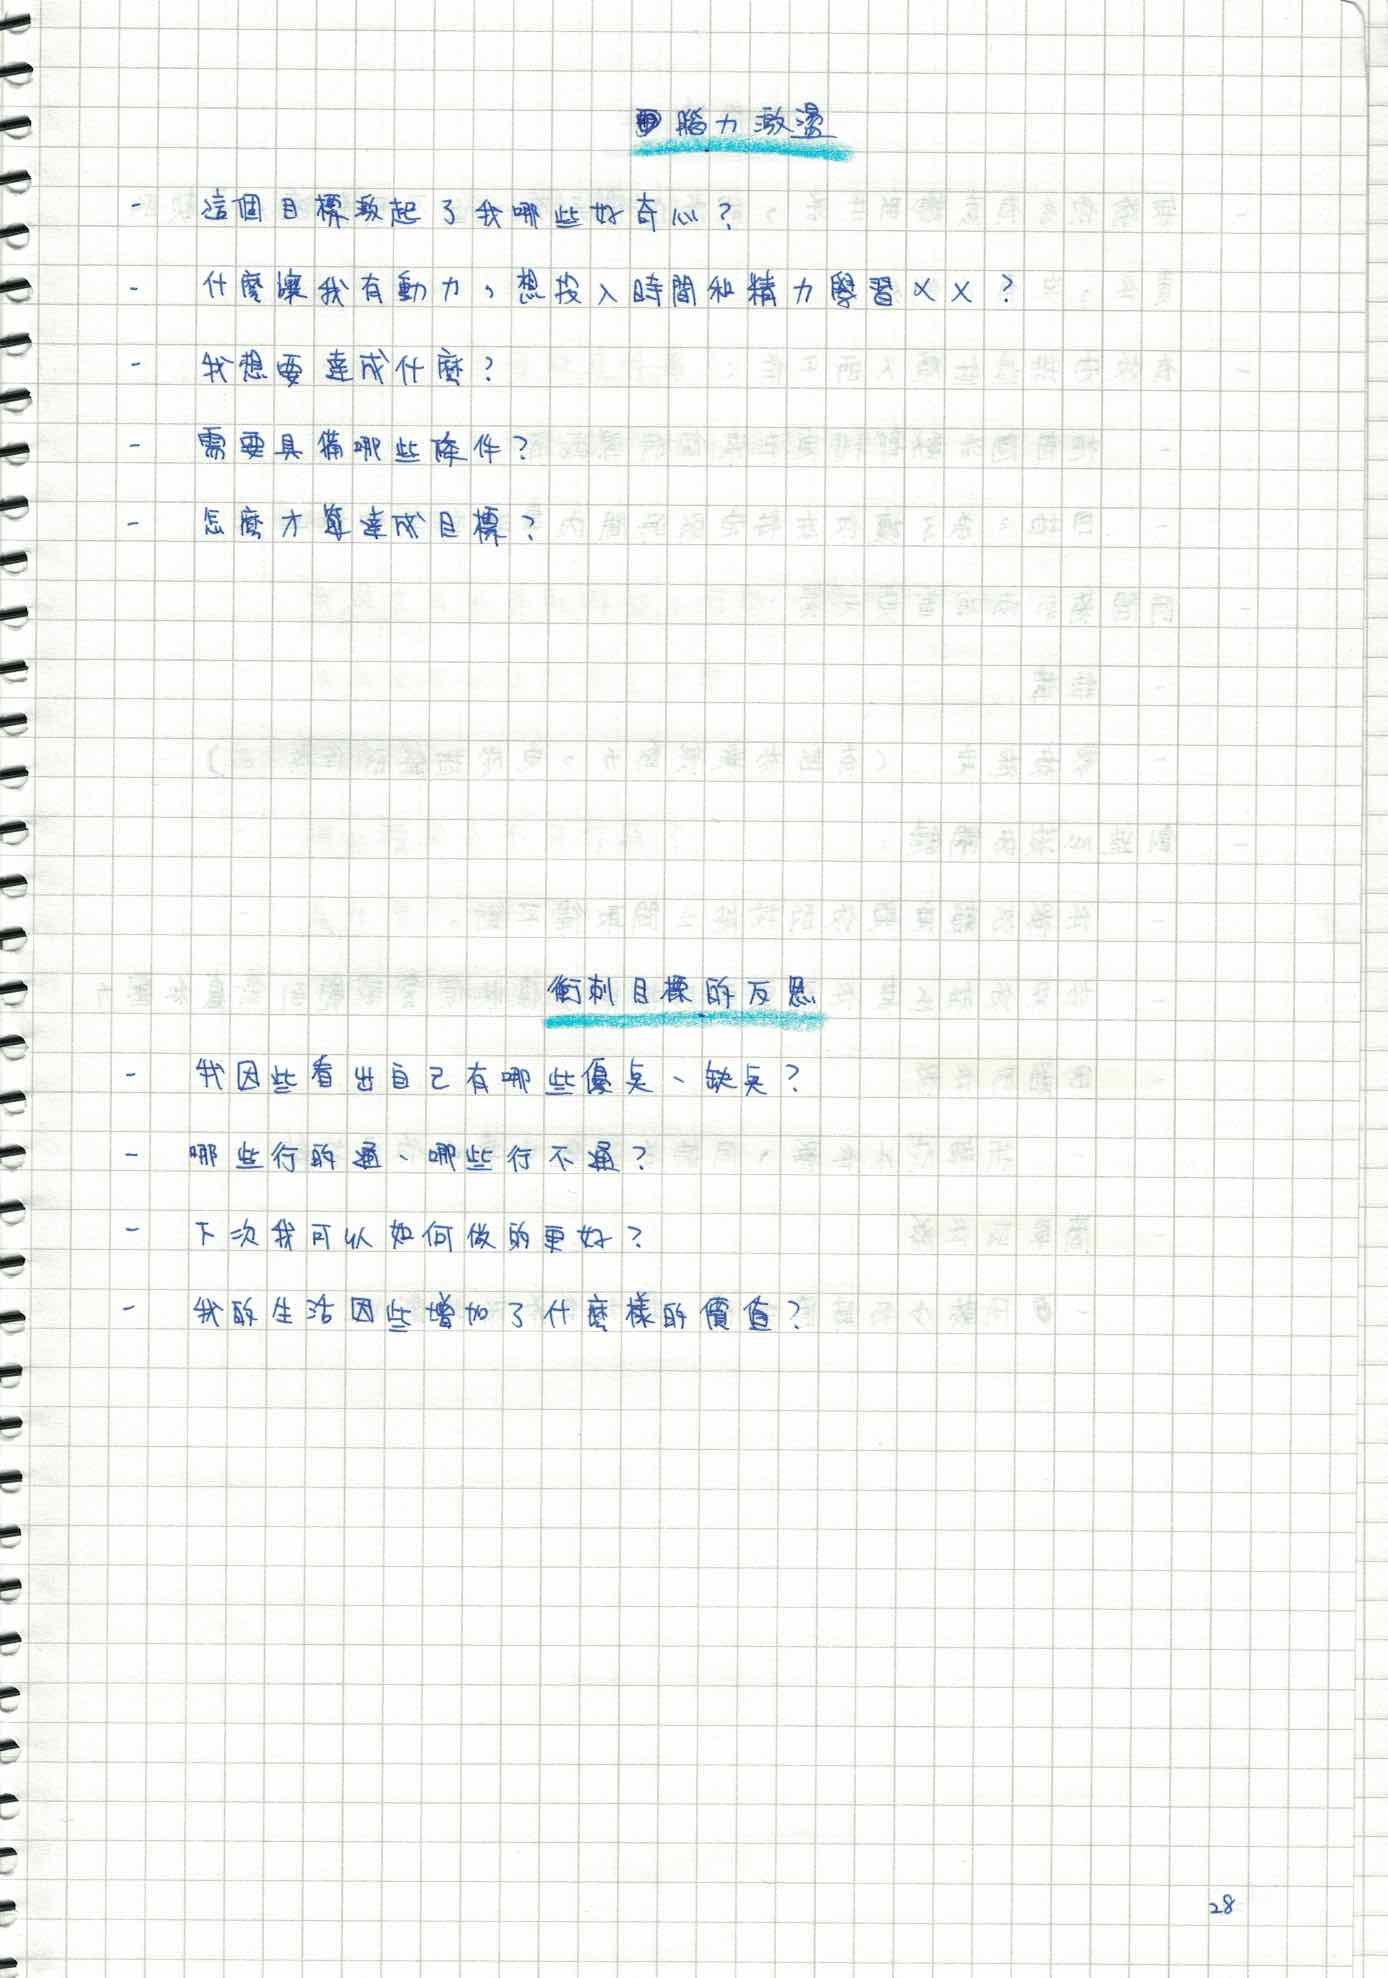 腦力激盪
- 這個目標激起了我哪些好奇心？
- 什麼讓我有動力，想投入時間和精力學習XX？
- 我想要達成什麼？
- 需要具備哪些條件？
- 怎麼才算達成目標？
衝刺目標的反思
- 我因些看出自己有哪些優點、缺點？
- 哪些行的通、哪些行不通？
- 下次我可以如何做的更好？
- 我的生活因些增加了什麼樣的價值？
28